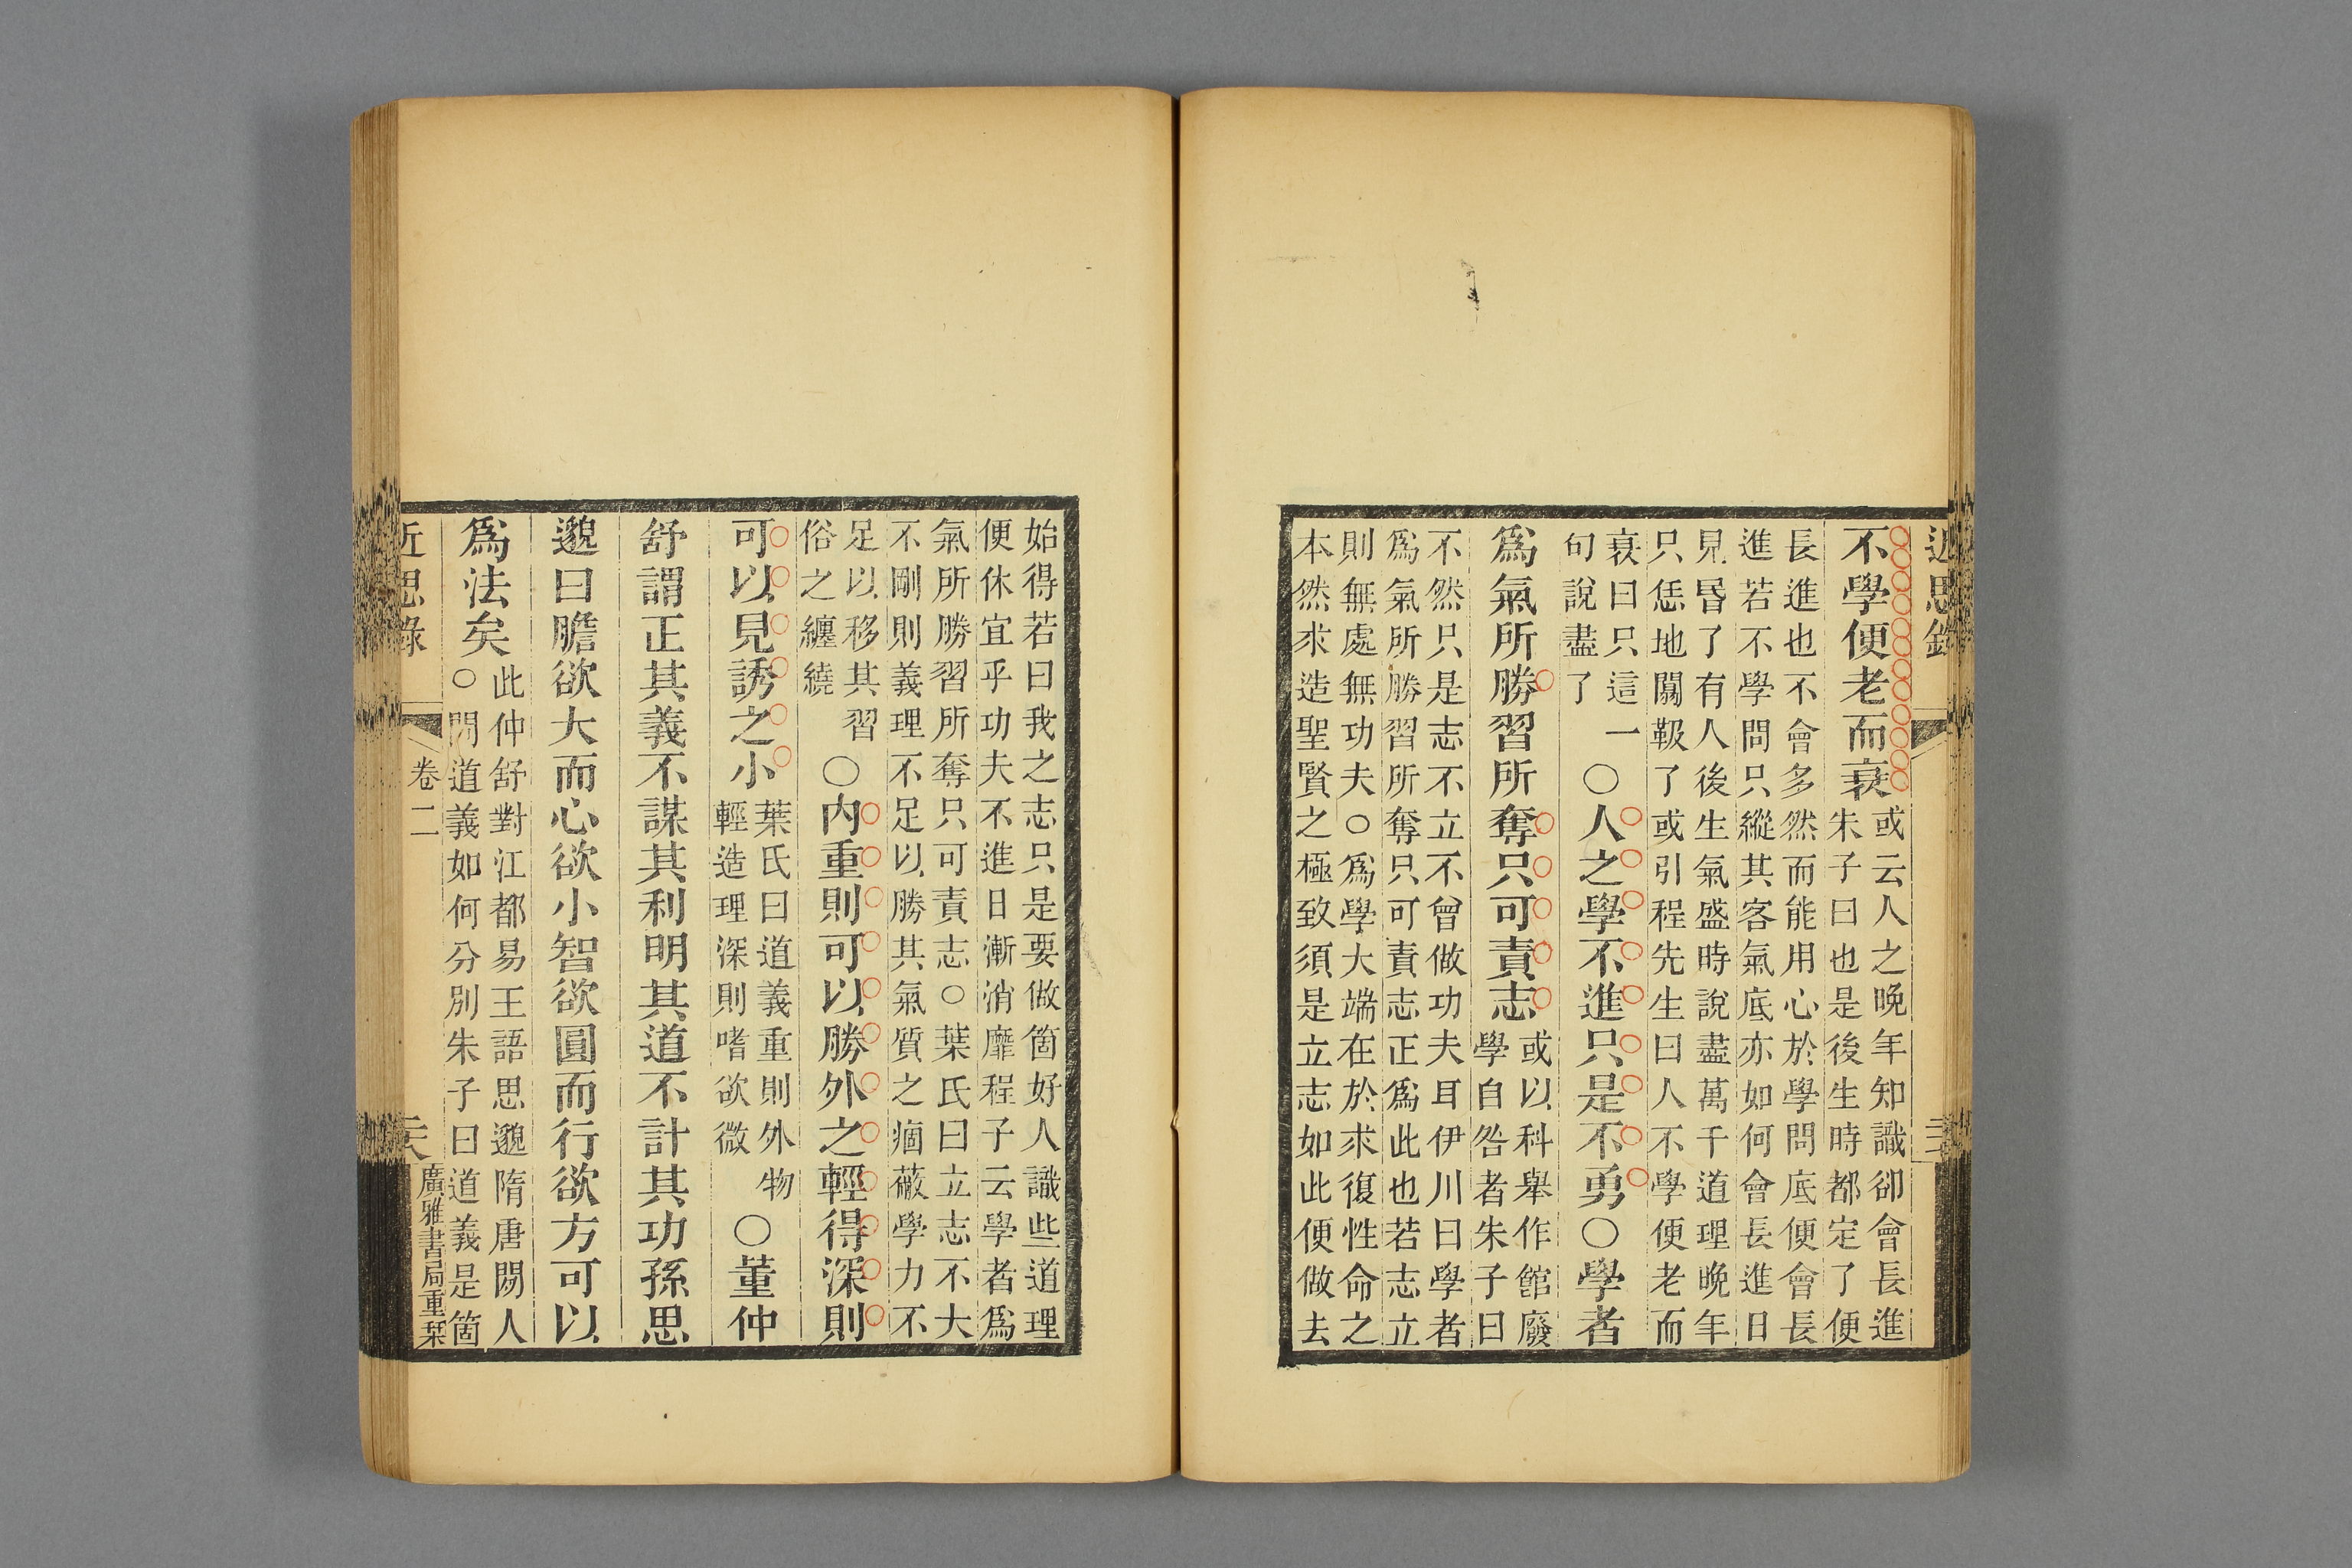 近思錄
不學便老而衰
或云人之晚年知識卻會長進
朱子曰也是後生時都定了便
長進也不會多然而能用心於學問底便會長
進若不學問只縱其客氣底亦如何會長進日
見昏了有人後生氣盛時說盡萬千道理晚年
只恁地闒靸了或引程先生曰人不學便老而
衰曰只這一
句說盡了
○人之學不進只是不勇○學者
爲氣所勝習所奪只可責志
或以科舉作館廢
學自咎者朱子曰
不然只是志不立不曾做功夫耳伊川曰學者
爲氣所勝習所奪只可責志正爲此也若志立
則無處無功夫○爲學大端在於求復性命之
本然求造聖賢之極致須是立志如此便做去
始得若曰我之志只是要做箇好人識些道理
便休宜乎功夫不進日漸消靡程子云學者爲
氣所勝習所奪只可責志○葉氏曰立志不大
不剛則義理不足以勝其氣質之痼蔽學力不
足以移其習
俗之纏繞
○內重則可以勝外之輕得深則
可以見誘之小
葉氏曰道義重則外物
輕造理深則嗜欲微
○董仲
舒謂正其義不謀其利明其道不計其功孫思
邈曰膽欲大而心欲小智欲圓而行欲方可以
爲法矣
此仲舒對江都易王語思邈隋唐閒人
○問道義如何分別朱子曰道義是箇
近思錄
卷二
廣雅書局重栞